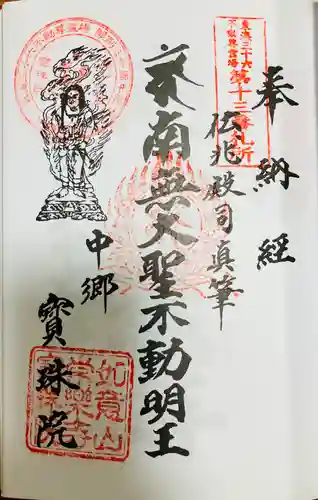 奉納経
東海三十六
不動尊霊場
第十三番札所
佐兆殿司真筆
南無大聖不動明王
中郷
寳珠院
如意山